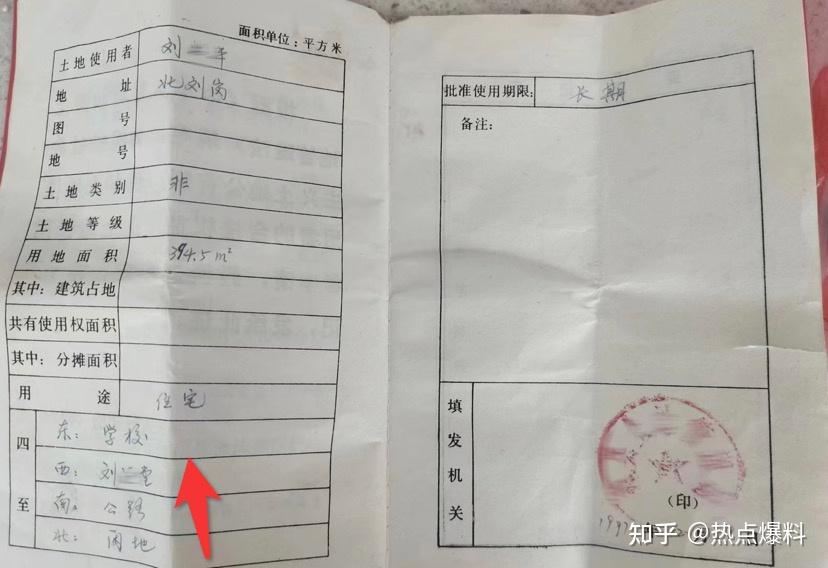 面积单位：平方米
土地使用者 刘
地 址 北刘岗
图 号
地 号
土地类别 非
土地等级
用地面积 394.5m²
其中：建筑占地
共有使用权面积
其中：分摊面积
用 途 住宅
四至
东：学校
西：刘 堂
南：公路
北：闲地
批准使用期限：长期
备注：
填发机关
（印）
知乎 @热点爆料